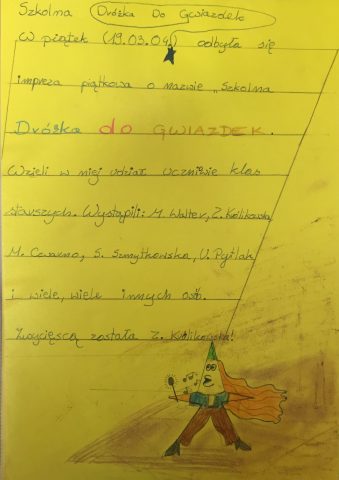 Szkolna Dróżka Do Gwiazdek
W piątek (19.03.04) odbyła się
impreza piątkowa o nazwie „Szkolna
Dróżka do GWIAZDEK.
Wzieli w niej udział uczniwie klas
starszych. Wystąpili: M. Walter, Z. Królikowska,
M. Czarno, S. Szmytkowska, U. Pytlak
i wiele, wiele innych osób.
Zwycięscą została Z. Królikowska!